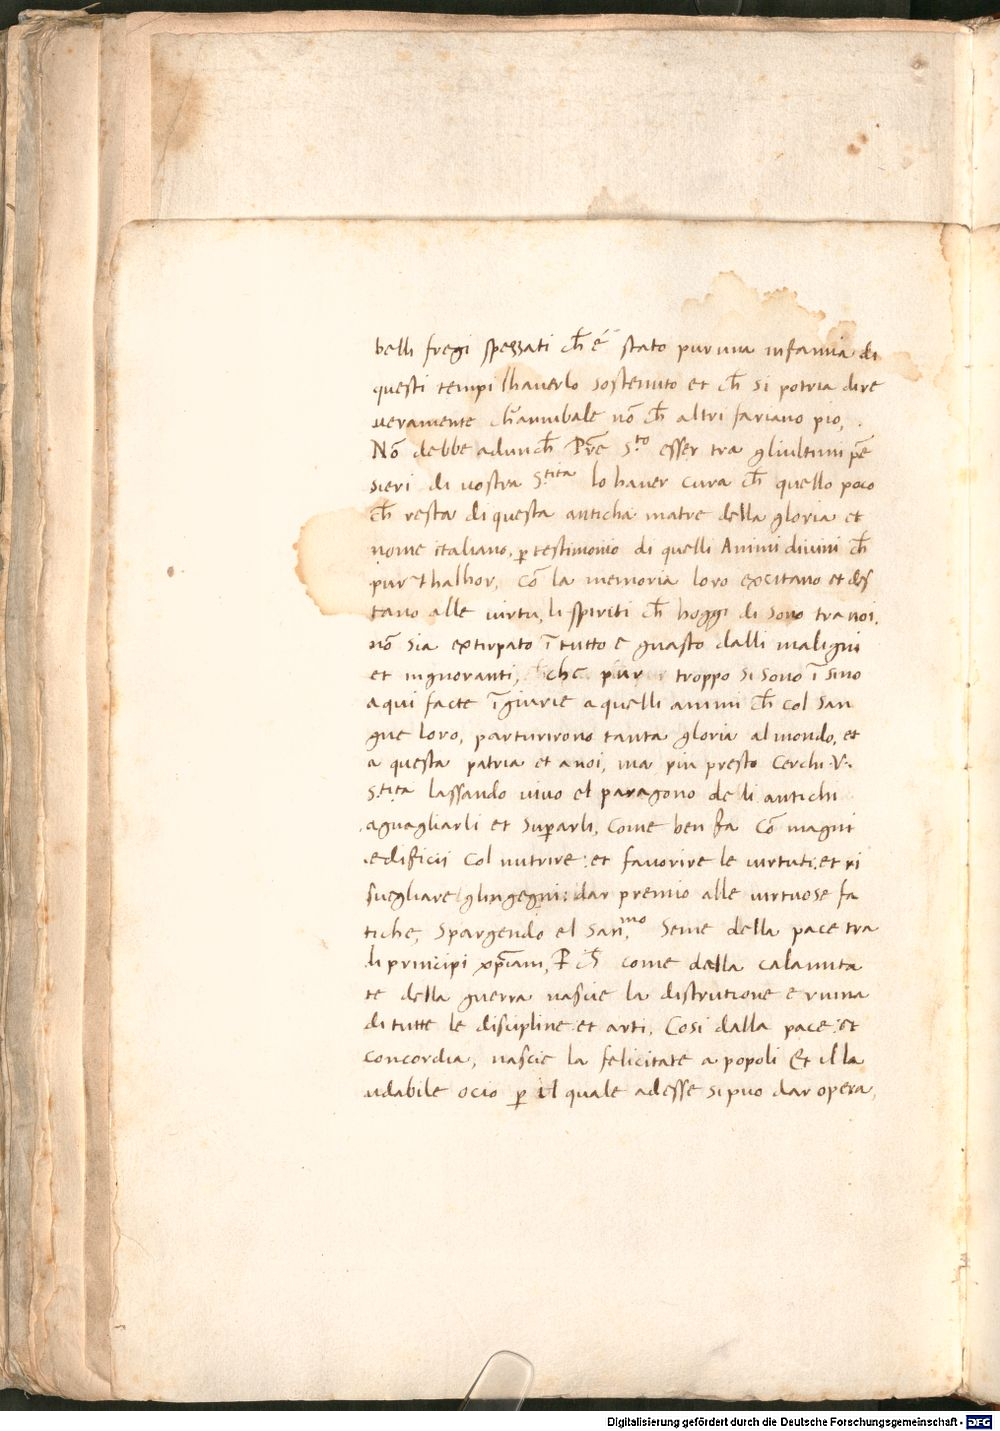 belli fregi spezzati ch̄ é stato pur una infamia di
questi tempi lhaverlo sostenuto et ch̄ si potria dire
veramente ch̄ annibale nō ch̄ altri fariano pio,
Nō debbe adunch̄ Pr̄e S.to esser tra gliultimi pē
sieri di vostra S.tita lo haver cura ch̄ quello poco
ch̄ resta di questa anticha matre della gloria et
nome italiano, p testimonio di quelli Animi divini ch̄
pur thalhor, cō la memoria loro excitano et des
tano alle virtu, li spiriti ch̄ hoggi di sono tra noi.
nō sia extirpato ī tutto e guasto dalli maligni
et ingnoranti, che pur troppo si sono ī sino
a qui facte īgiurie a quelli animi ch̄ col san
gue loro, parturirono tanta gloria al mondo, et
a questa patria et a noi, ma piu presto cerchi V.
S.tita lassando vivo el paragono de li antichi
aguagliarli et superarli, come ben fa cō magni
edificii col nutrire: et favorire le virtuti: et ri
svegliare glingegni: dar premio alle virtuose fa
tiche, spargendo el san.mo seme della pace tra
li principi xp̄iani, P ch̄ come della calamita
te della guerra nascie la distrutione e ruina
di tutte le discipline: et arti. Cosi dalla pace: et
concordia, nascie la felicitate a popoli Et il la
udabile ocio p il quale adesse si puo dar opera,
Digitalisierung gefördert durch die Deutsche Forschungsgemeinschaft - DFG